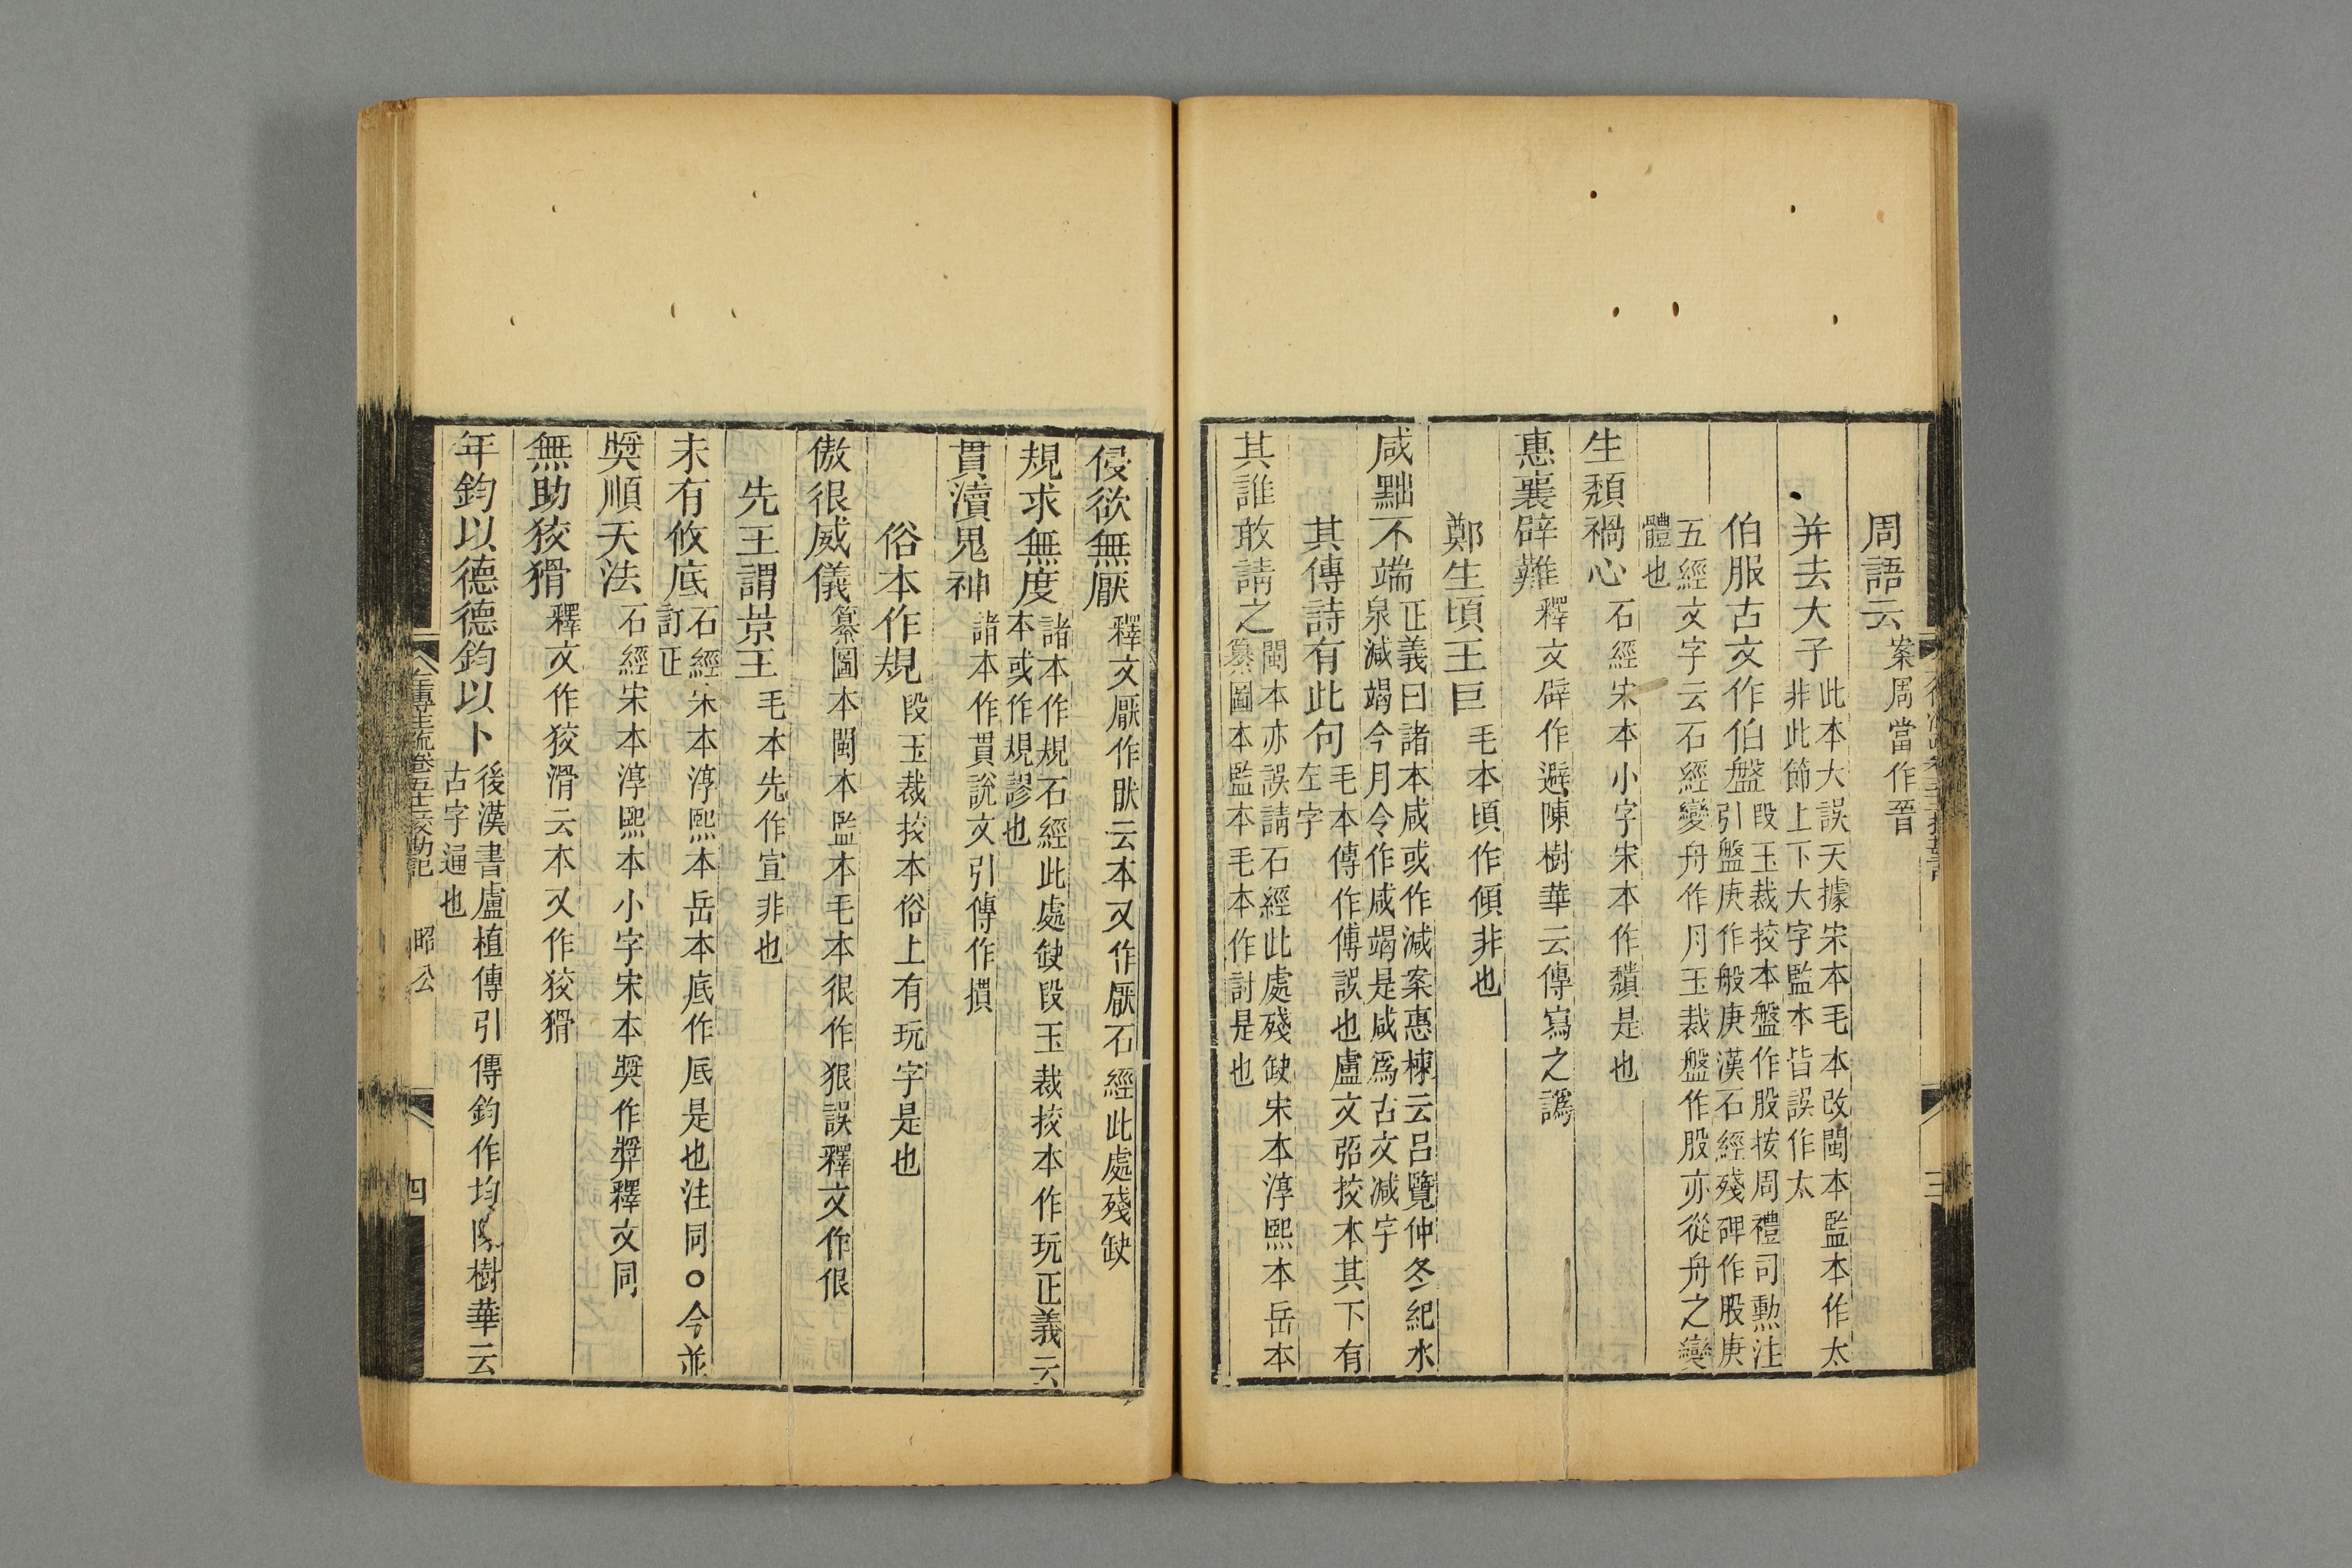 周語云案周當作晉
并去大子此本大誤天據宋本毛本改閩本監本作太
非此節上下大字監本皆誤作太
伯服古文作伯盤段玉裁挍本盤作股按周禮司勲注
引盤庚作般庚漢石經殘碑作股庚
五經文字云石經變舟作月玉裁盤作股亦從舟之變
體也
生頹禍心石經宋本小字宋本作穨是也
惠襄辟難釋文辟作避陳樹華云傳寫之譌
鄭生頃王巨毛本頃作傾非也
咸黜不端正義曰諸本咸或作減案惠棟云呂覽仲冬紀水
泉減竭今月令作咸竭是咸爲古文減字
其傳詩有此句毛本傳作傅誤也盧文弨挍本其下有
左字
其誰敢請之閩本亦誤請石經此處殘缺宋本淳熙本岳本
纂圖本監本毛本作討是也
侵欲無厭釋文厭作猒云本又作厭石經此處殘缺
規求無度諸本作規石經此處缺段玉裁挍本作玩正義云
本或作規謬也
貫瀆鬼神諸本作貫說文引傳作摜
俗本作規段玉裁挍本俗上有玩字是也
傲很威儀纂圖本閩本監本毛本很作狠誤釋文作佷
先王謂景王毛本先作宣非也
未有攸底石經宋本淳熙本岳本底作厎是也注同○今並
訂正
奬順天法石經宋本淳熙本小字宋本奬作奨釋文同
無助狡猾釋文作狡滑云本又作狡猾
年鈞以德德鈞以卜後漢書盧植傳引傳鈞作均陳樹華云
古字通也
左專主疏卷五十二校勘記 昭公 四